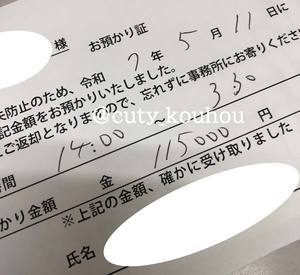 様　お預かり証
防止のため、令和 7 年 5 月 11 日に
記金額をお預かりいたしました。
ご返却となりますので、忘れずに事務所にお寄りくださ
@cuty_kouhou
時間 14:00 〜 330
かり金額 金 115000 円
※上記の金額、確かに受け取りました
氏名